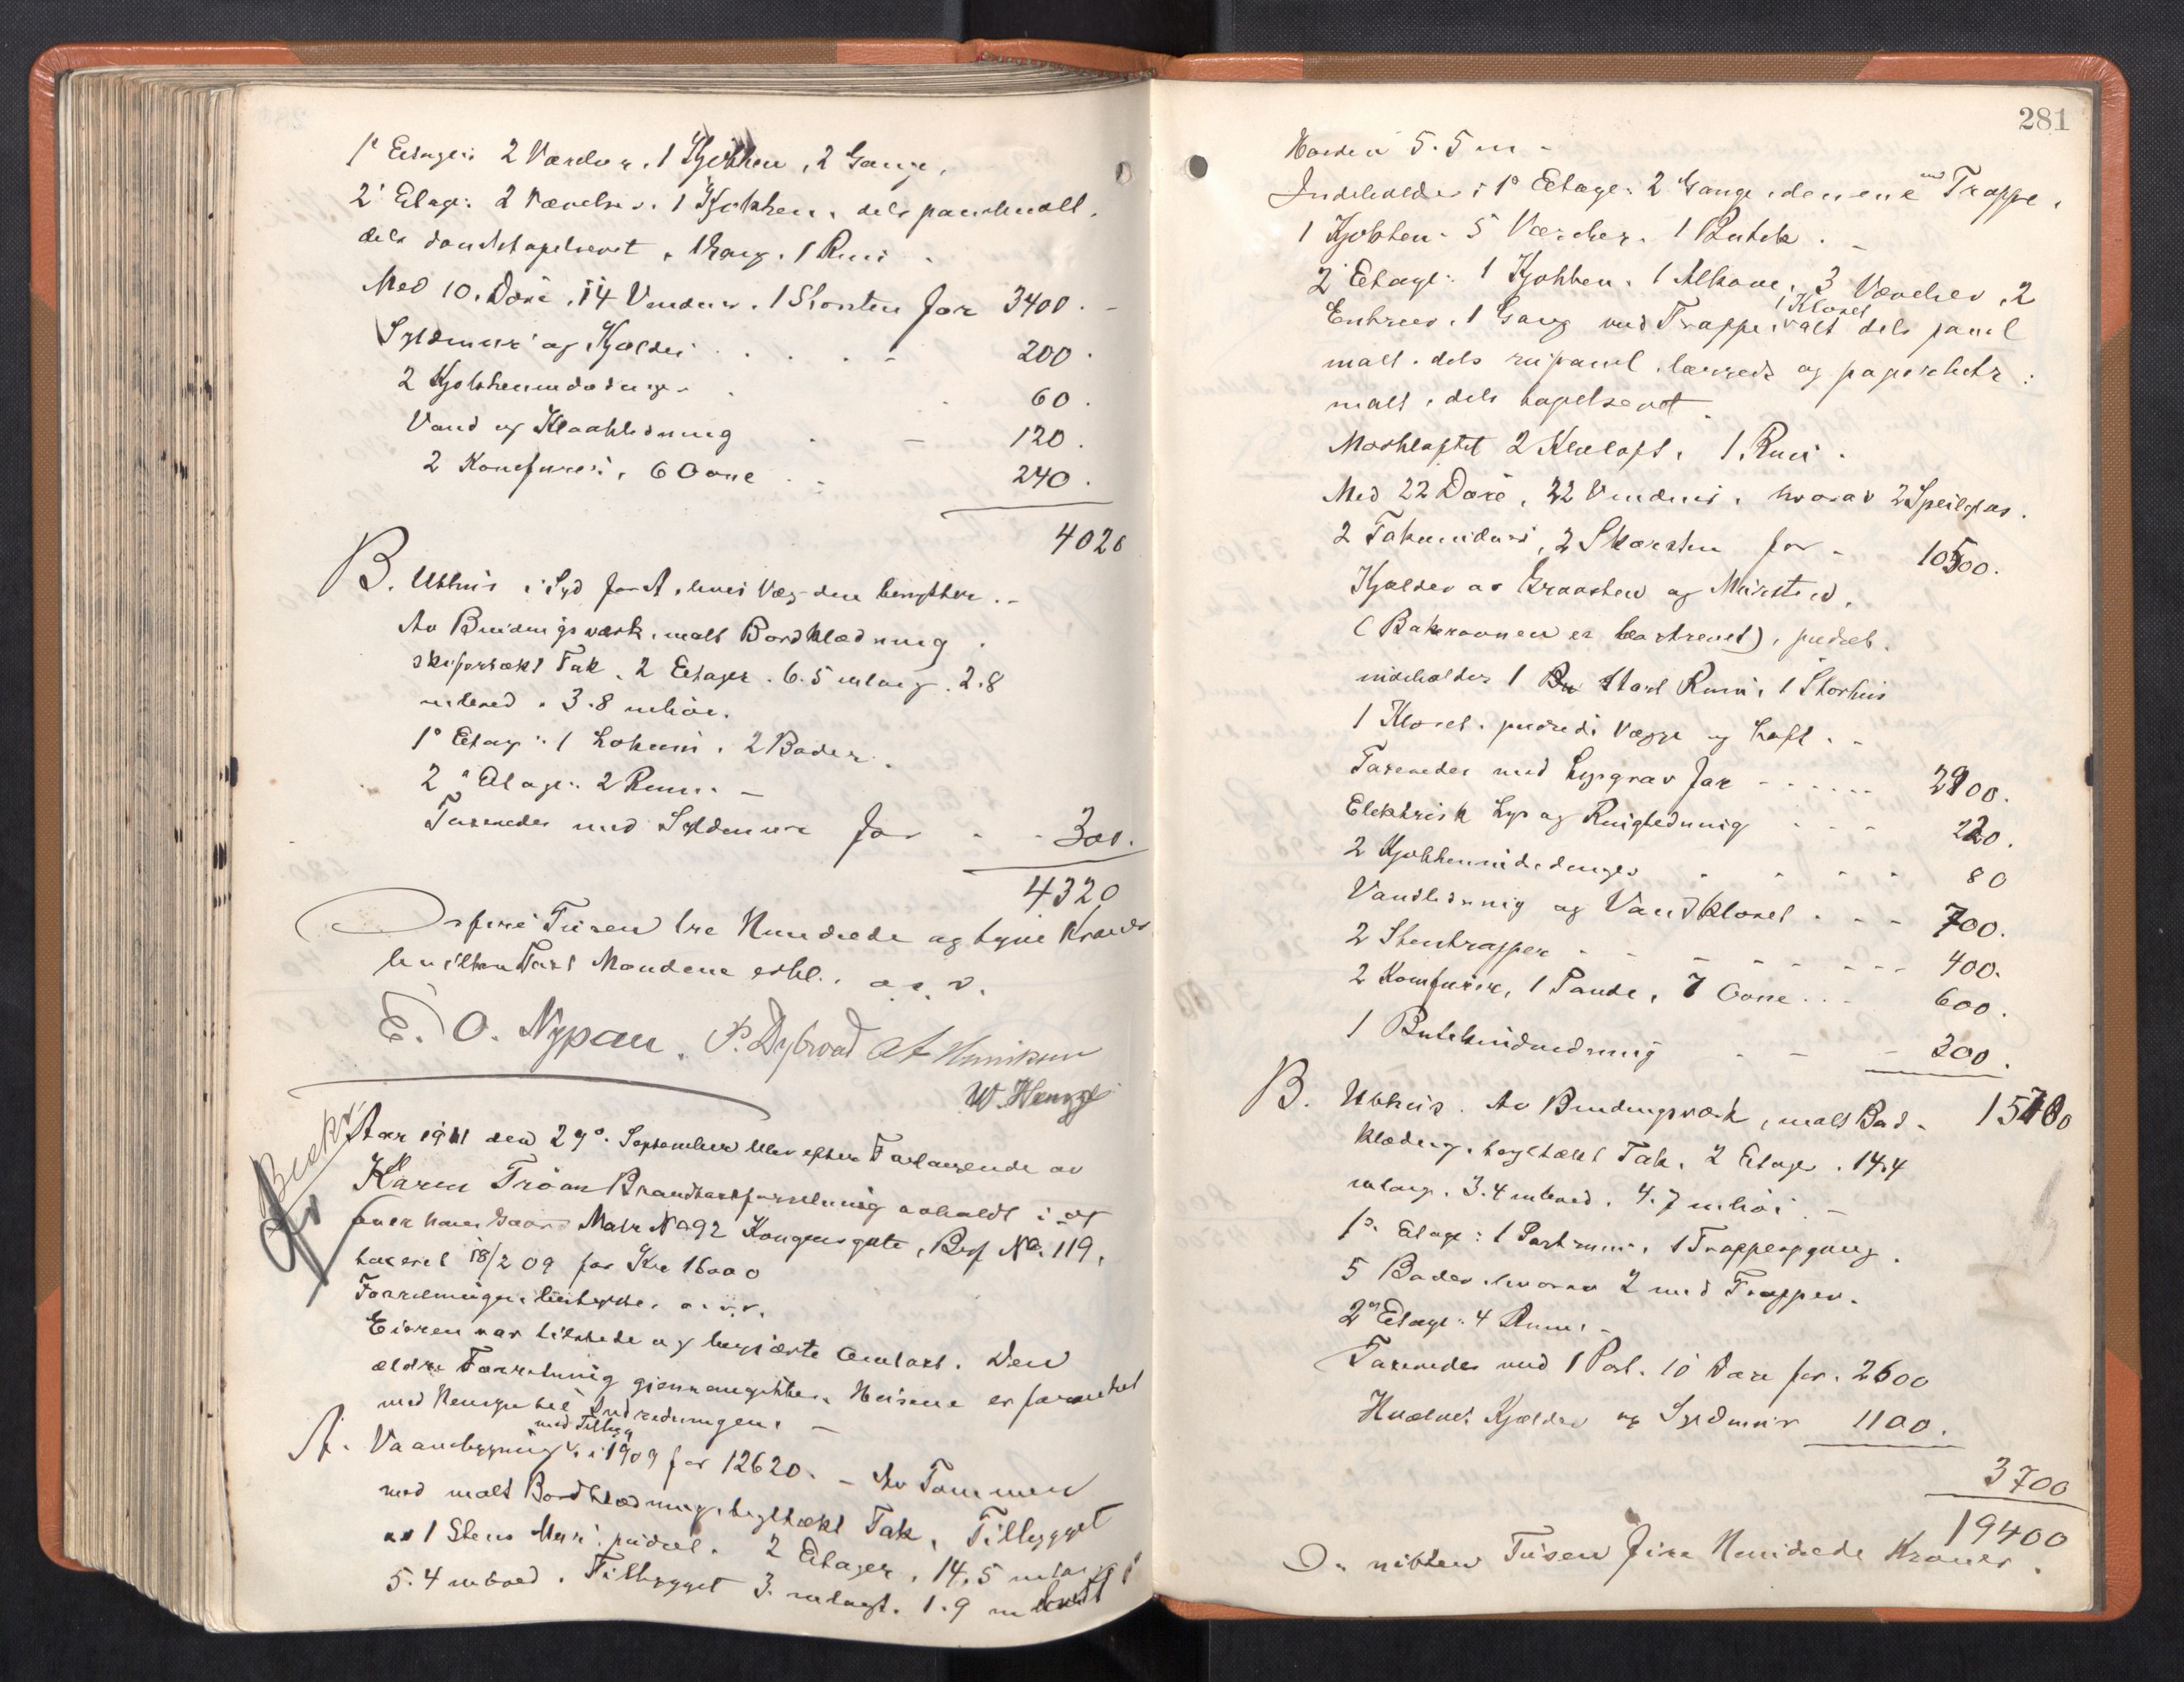 1ᵒ Etage: 2 Værelser, 1 Kjökken, 2 Gange,
2ᵉ Etage: 2 Værelser. 1 Kjökken, dels panelmalt,
dels tapetseret, 1 Gang, 1 Rum.
Med 10 Döre, 14 Vinduer, 1 Skorsten for 3400.
Syldmur og Kjælder 200.
2 Kjökkenindredninger 60.
Vand og Kloakledning 120.
2 Komfurer, 6 Ovne 240.
4020
B. Uthus i Syd for A, hvis Væg den benytter.
Av Bindingsværk, malt Bordklædning
skifertækt Tak, 2 Etager. 6.5 m lang. 2.8
m bred. 3.8 m höi.
1ᵒ Etage: 1 Lokum, 2 Boder.
2ᵉ Etage: 2 Rum.
Taxeredes med Syldmur for 300.
4320
Er fire Tusen tre Hundrede og tyve Kroner
hvilken Taxt Mændene erkl. o.s.v.
E. O. Nypan. P. Dybwad A Henriksen
W. Hempel
Aar 1911 den 29ᵒ September blev efter Forlangende av
Karen Tröan Brandtaxtforretning avholdt i og
over hans Gaard Matr Nᵒ 92 Kongensgate, Besf Nᵒ 119,
taxeret 18/2 09 for Kr 16000
Forretningen bestyrtes o.s.v.
Eieren var tilstede og begjærte Omtaxt. Den
ældre Forretning gjennemgikkes. Husene er forandret
med Hensyn til Indredningen.
med Tilbygg
A. Vaaningsbygning i 1909 for 12620. - Av Tömmer
med malt Bordklædning, tegltækt Tak, Tilbygget
av 1 Stens Mur, pudset. 2 Etager, 14.5 m lang
5.4 m bred. Tilbygget 3. m langt. 1.9 m bredt
281
Höiden 5.5 m -
Indeholder i 1ᵒ Etage: 2 Gange, den ene med Trappe,
1 Kjökken. 5 Værelser. 1 Butik.
2ᵉ Etage: 1 Kjökken. 1 Alkove, 3 Værelser, 2
1 Kloset
Entreer, 1 Gang med Trappe, alt dels panel
malt, dels rupanel, lærred og papirbetr.
malt, dels tapetseret
Mörkloftet 2 Klæloft, 1 Rum.
Med 22 Döre, 22 Vinduer, hvorav 2 Speilglas.
2 Takvinduer, 2 Skorsten for 10500.
Kjælder av Graasten og Mursten,
(Bakerovnen er borttrevet), pudset.
indeholder 1 stort Rum, 1 Storhus
1 Kloset. pudsede Vægge og Loft.
Taxeredes med Lysgrav for 2900.
Elektrisk Lys og Ringledning 220.
2 Kjökkenindredninger 80
Vandledning og Vandkloset 700.
2 Stentrapper 400.
2 Komfurer, 1 Pande, 7 Ovne 600.
1 Butikindredning 300.
15700
B. Uthus. Av Bindingsværk, malt Bord-
klædning, tegltækt Tak. 2 Etager. 14.4
m lang. 3.4 m bred. 4.7 m höi. -
1ᵒ Etage: 1 Portrum, 1 Trappeopgang.
5 Boder, hvorav 2 med Trapper.
2ᵉ Etage: 4 Rum. -
Taxeredes med 1 Port. 10 Döre for. 2600
Hvælvet Kjælder og Syldmur 1100.
3700
19400
Er nitten Tusen fire Hundrede Kroner.